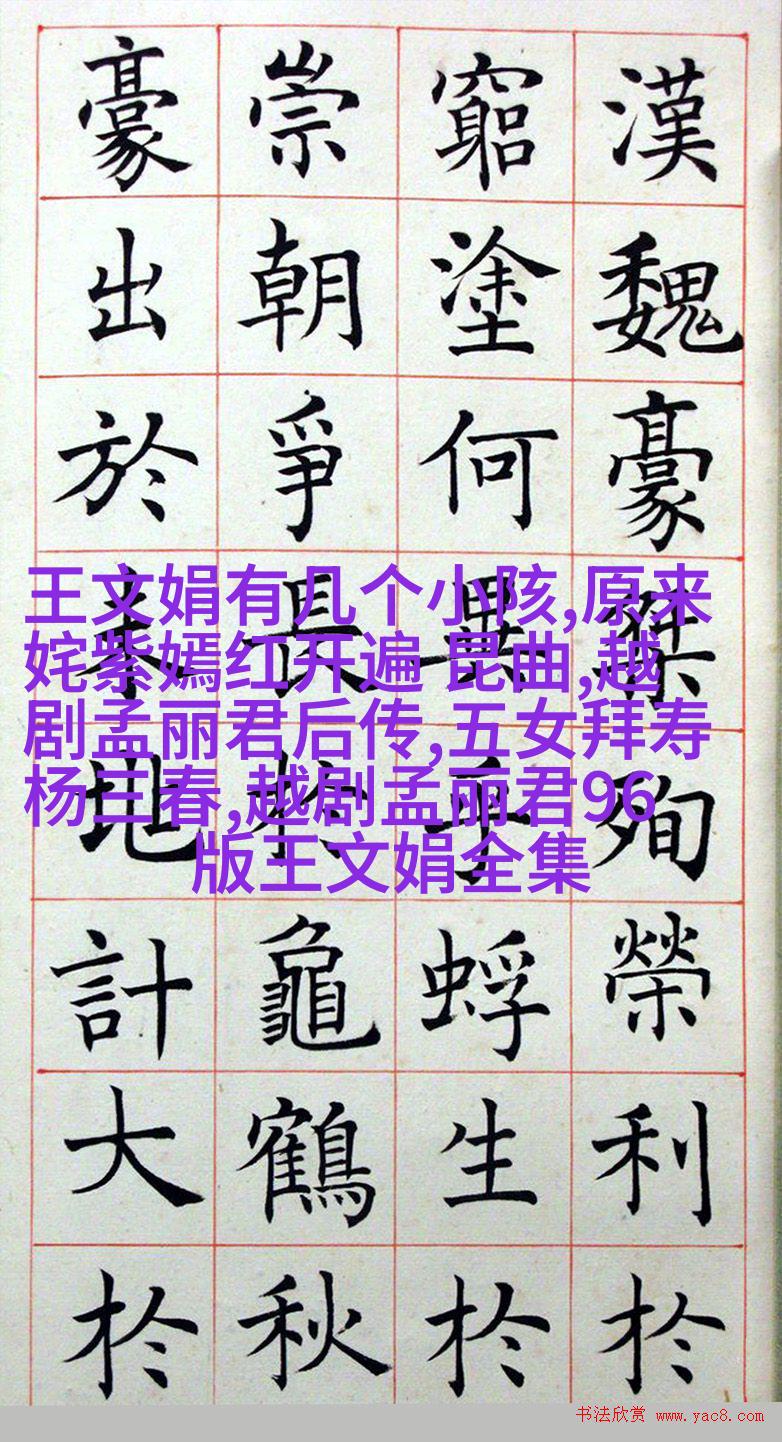 漢魏豪桀殉榮利於
窮塗何異乎蜉生於
崇朝爭長於龜鶴秋
豪出於地計大於
王文娟有几个小陔,原来
姹紫嫣红开遍 昆曲,越
剧孟丽君后传,五女拜寿
杨三春,越剧孟丽君96
版王文娟全集
书法欣赏 www.yac8.com